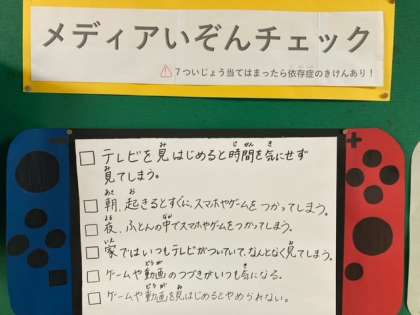 メディアいぞんチェック
⚠7ついじょう当てはまったら依存症のきけんあり!
□ テレビを見はじめると時間を気にせず
見てしまう。
□ 朝、起きるとすぐに、スマホやゲームをつかってしまう。
□ 夜、ふとんの中でスマホやゲームをつかってしまう。
□ 家ではいつもテレビがついていて、なんとなく見てしまう。
□ ゲームや動画のつづきがいつも気になる。
□ ゲームや動画を見はじめるとやめられない。